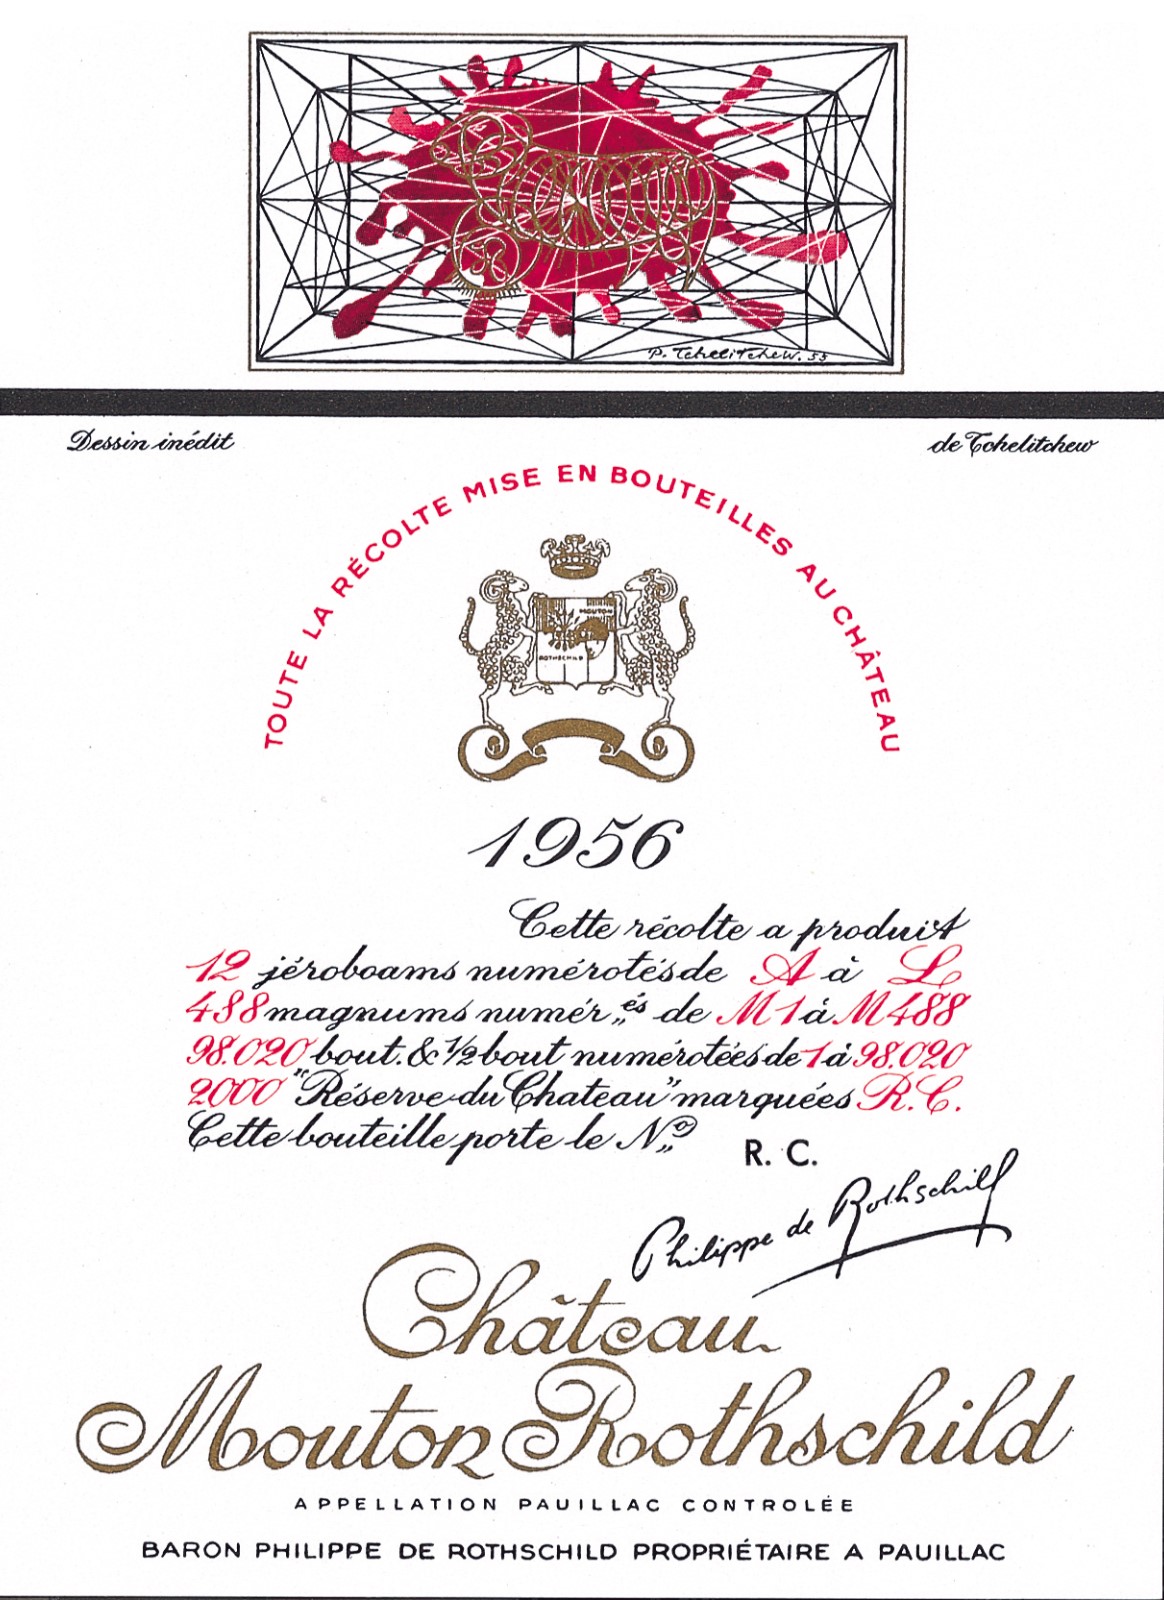 P. Tchelitchew. 55
Dessin inédit
de Tchelitchew
TOUTE LA RÉCOLTE MISE EN BOUTEILLES AU CHÂTEAU
MOUTON
ROTHSCHILD
1956
Cette récolte a produit
12 jéroboams numérotés de A à L
488 magnums numér„és de M1 à M488
98.020 bout. & 1/2 bout numérotées de 1 à 98.020
2000 "Réserve du Chateau" marquées R.C.
Cette bouteille porte le No R. C.
Philippe de Rothschild
Château
Mouton Rothschild
APPELLATION PAUILLAC CONTROLÉE
BARON PHILIPPE DE ROTHSCHILD PROPRIÉTAIRE A PAUILLAC